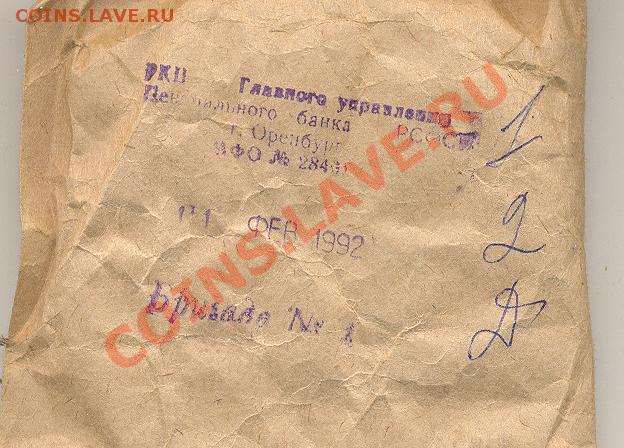 COINS.LAVE.RU
РКЦ Главного управления
Центрального банка РСФСР
г. Оренбург
МФО №
ФЕВ 1992
Бригада № 1
1
2
Д
COINS.LAVE.RU
COINS.LAVE.RU